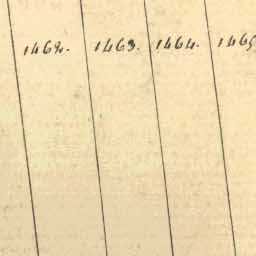 1462. 1463. 1464. 1465